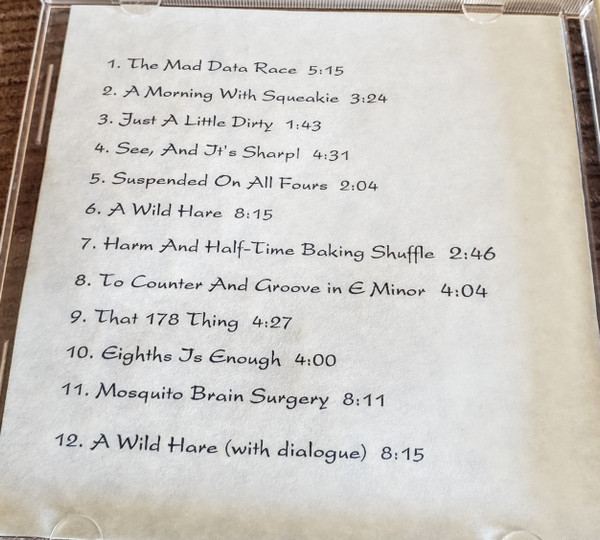 1. The Mad Data Race 5:15
2. A Morning With Squeakie 3:24
3. Just A Little Dirty 1:43
4. See, And It's Sharp! 4:31
5. Suspended On All Fours 2:04
6. A Wild Hare 8:15
7. Harm And Half-Time Baking Shuffle 2:46
8. To Counter And Groove in E Minor 4:04
9. That 178 Thing 4:27
10. Eighths Is Enough 4:00
11. Mosquito Brain Surgery 8:11
12. A Wild Hare (with dialogue) 8:15